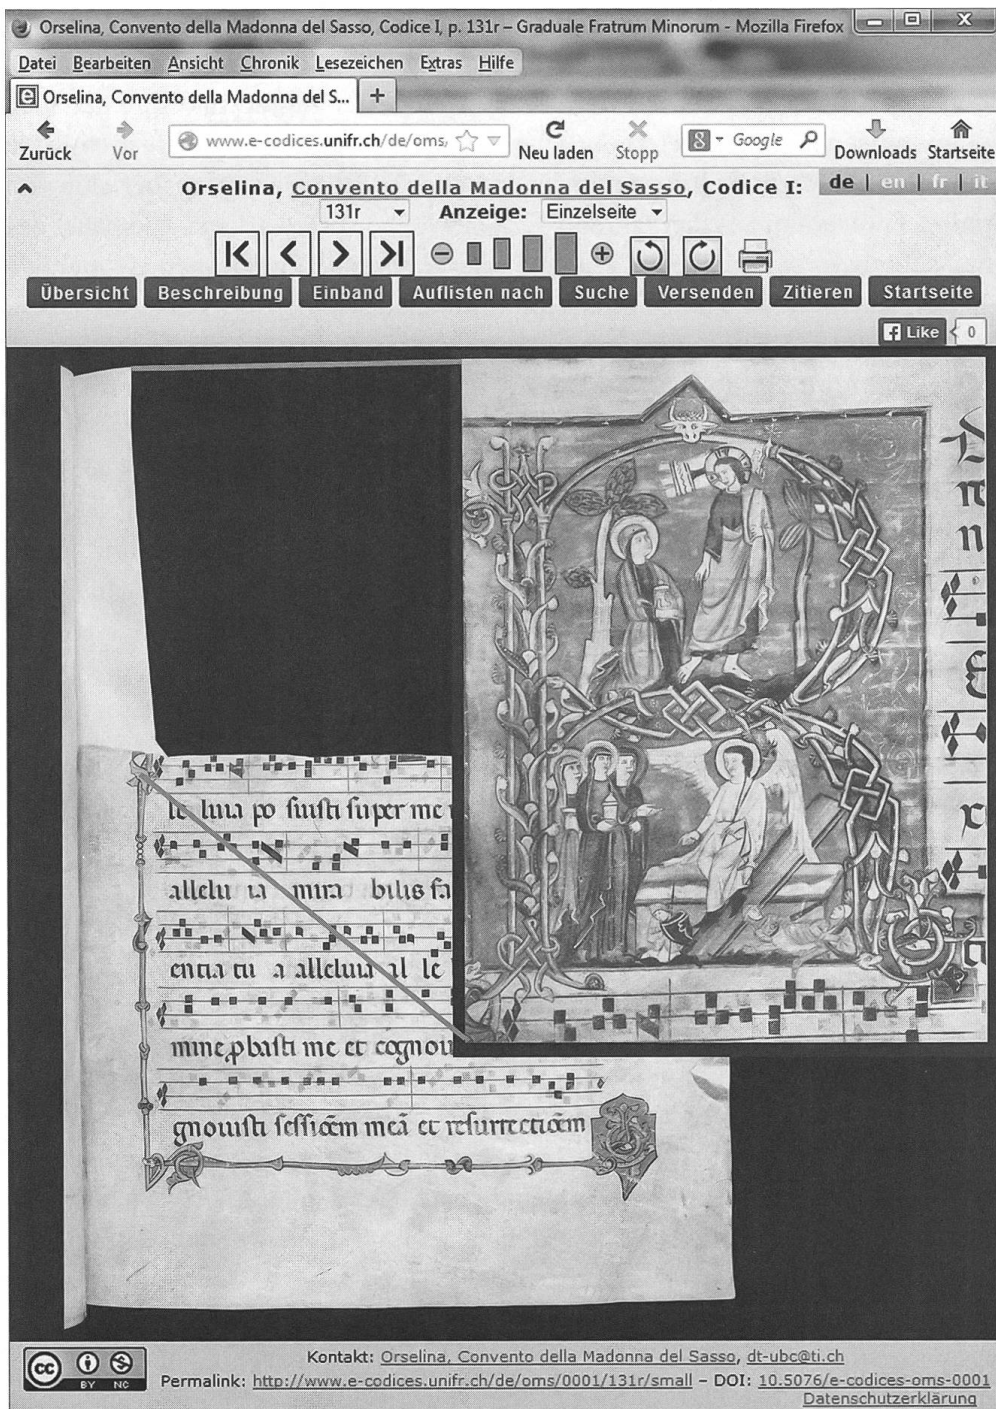 Orselina, Convento della Madonna del Sasso, Codice I, p. 131r – Graduale Fratrum Minorum - Mozilla Firefox
Datei Bearbeiten Ansicht Chronik Lesezeichen Extras Hilfe
Orselina, Convento della Madonna del S... +
Zurück Vor www.e-codices.unifr.ch/de/oms, Neu laden Stopp Google Downloads Startseite
Orselina, Convento della Madonna del Sasso, Codice I: de | en | fr | it
131r Anzeige: Einzelseite
Übersicht Beschreibung Einband Auflisten nach Suche Versenden Zitieren Startseite
Like 0
le luia po suisti super me
allelu ia mira bilis fa
entia tu a alleluia al le
mine ꝓbasti me et cognoui
gnouisti sessiōem meā et resurrectiōem
cc BY NC
Kontakt: Orselina, Convento della Madonna del Sasso, dt-ubc@ti.ch
Permalink: http://www.e-codices.unifr.ch/de/oms/0001/131r/small – DOI: 10.5076/e-codices-oms-0001
Datenschutzerklärung